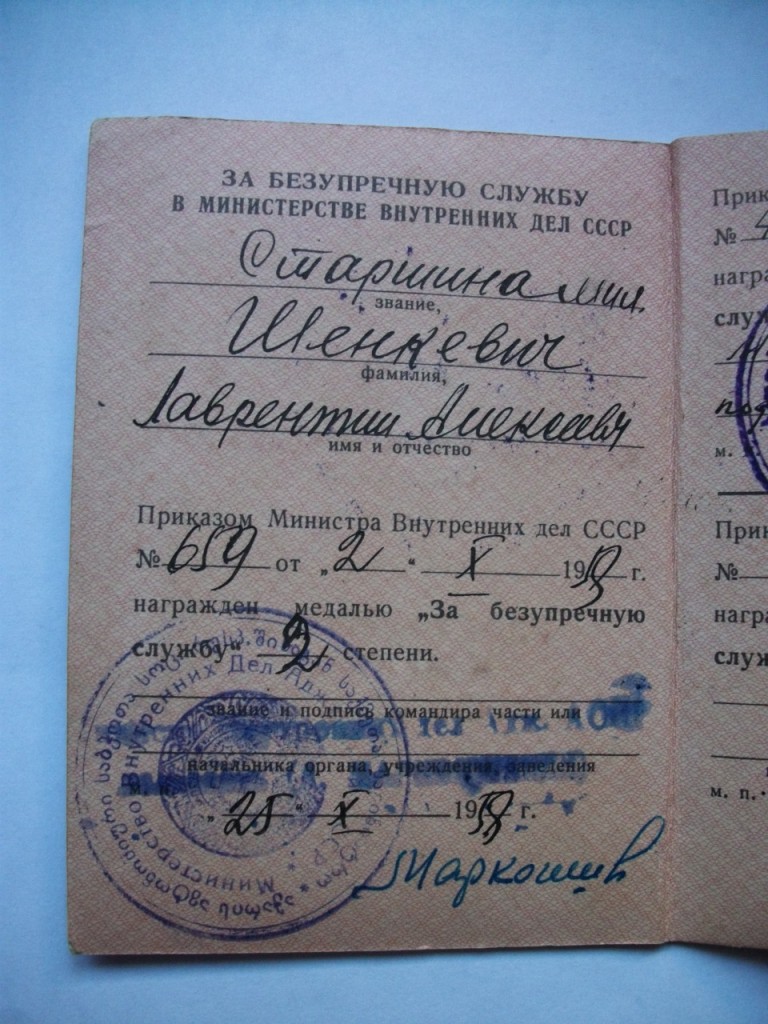 ЗА БЕЗУПРЕЧНУЮ СЛУЖБУ
В МИНИСТЕРСТВЕ ВНУТРЕННИХ ДЕЛ СССР
Старшина мил.
звание,
Шенкевич
фамилия,
Лаврентий Алексеевич
имя и отчество
Приказом Министра Внутренних дел СССР
№ 659 от „2“ X 195 г.
награжден медалью „За безупречную
службу“ 2 степени.
звание и подпись командира части или
начальника органа, учреждения, заведения
м. п.
„25“ X 1958 г.
Министерство Внутренних Дел Адж
Прик
№
нагр
служ
м.
Прик
№
награ
служ
м. п.